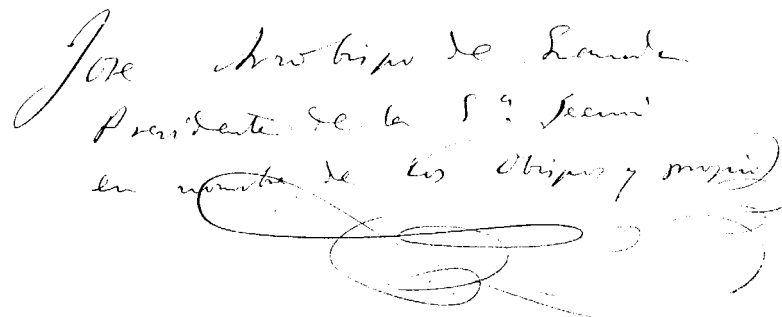 Jose Arzobispo de Granada
Presidente de la 5ª Sección
en nombre de los Obispos y propio